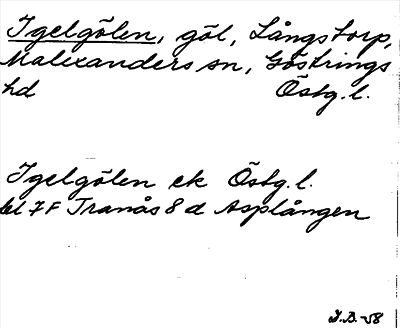 Igelgölen, göl, Långstorp,
Malexanders sn, Göstrings
hd Östg.l.
Igelgölen ek Östg.l.
bl 7F Tranås 8d Asplången
I.B.-58